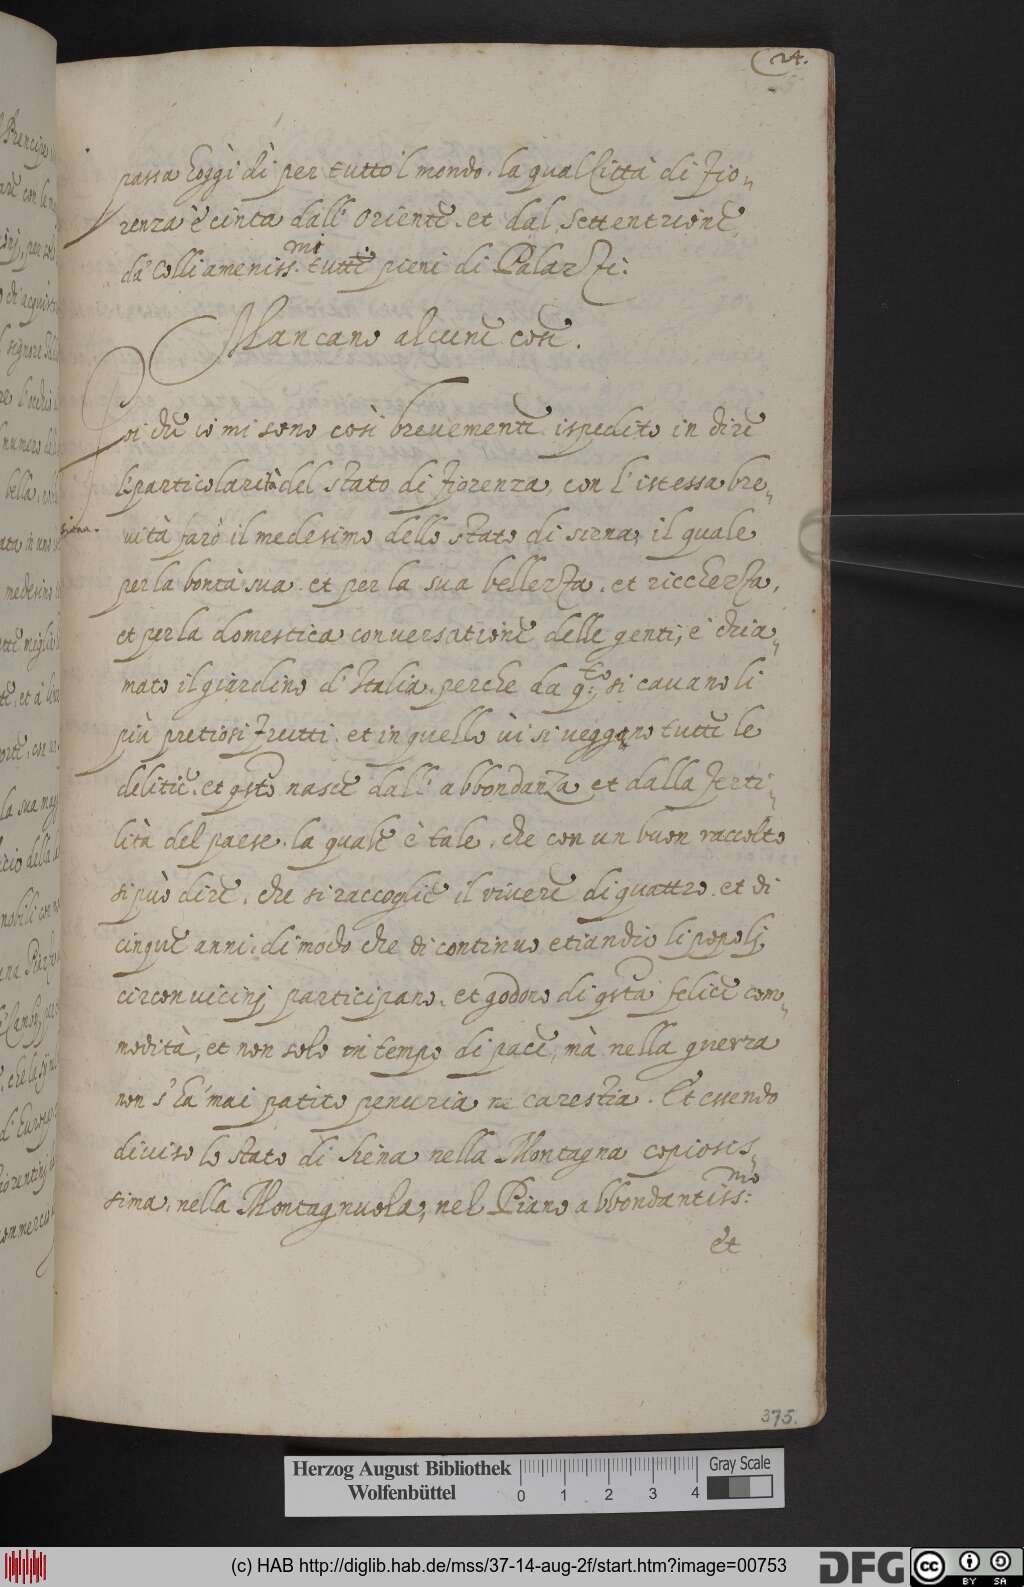 24.
passa hoggi dì per tutto 'l mondo. la qual Città di Fio-
renza è cinta dall' Oriente. et dal Settentrione,
da' Colli ameniss.mi tutti pieni di Palazzi.
Mancano alcune cose.
Poi che io mi sono così brevemente ispedito in dire
le particolarità del stato di Fiorenza, con l'istessa bre-
Siena.
uità farò il medesimo dello stato di Siena, il quale
per la bontà sua. et per la sua bellezza. et ricchezza,
et per la domestica conuersatione delle genti, è chia-
mato il giardino d'Italia. perche da q.to si cauano li
più pretiosi frutti. et in quello ui si veggono tutte le
delitie. et qsto nasce dall' abbondanza et dalla ferti-
lità del paese. la quale è tale. che con un buon raccolto
si può dire. che si raccoglie il viuere di quattro. et di
cinque anni. di modo che di continuo etiandio li popolj
circonuicinj participano. et godono di qsta felice com-
modità, et non solo in tempo di pace, mà nella guerra
non s'hà mai patito penuria ne carestia. Et essendo
diuiso lo stato di Siena nella Montagna copiosis-
sima. nella Montagnuola, nel Piano abbondantiss.mo
et
375.
Herzog August Bibliothek
Wolfenbüttel
0 1 2 3 4
Gray Scale
(c) HAB http://diglib.hab.de/mss/37-14-aug-2f/start.htm?image=00753
DFG
cc BY SA